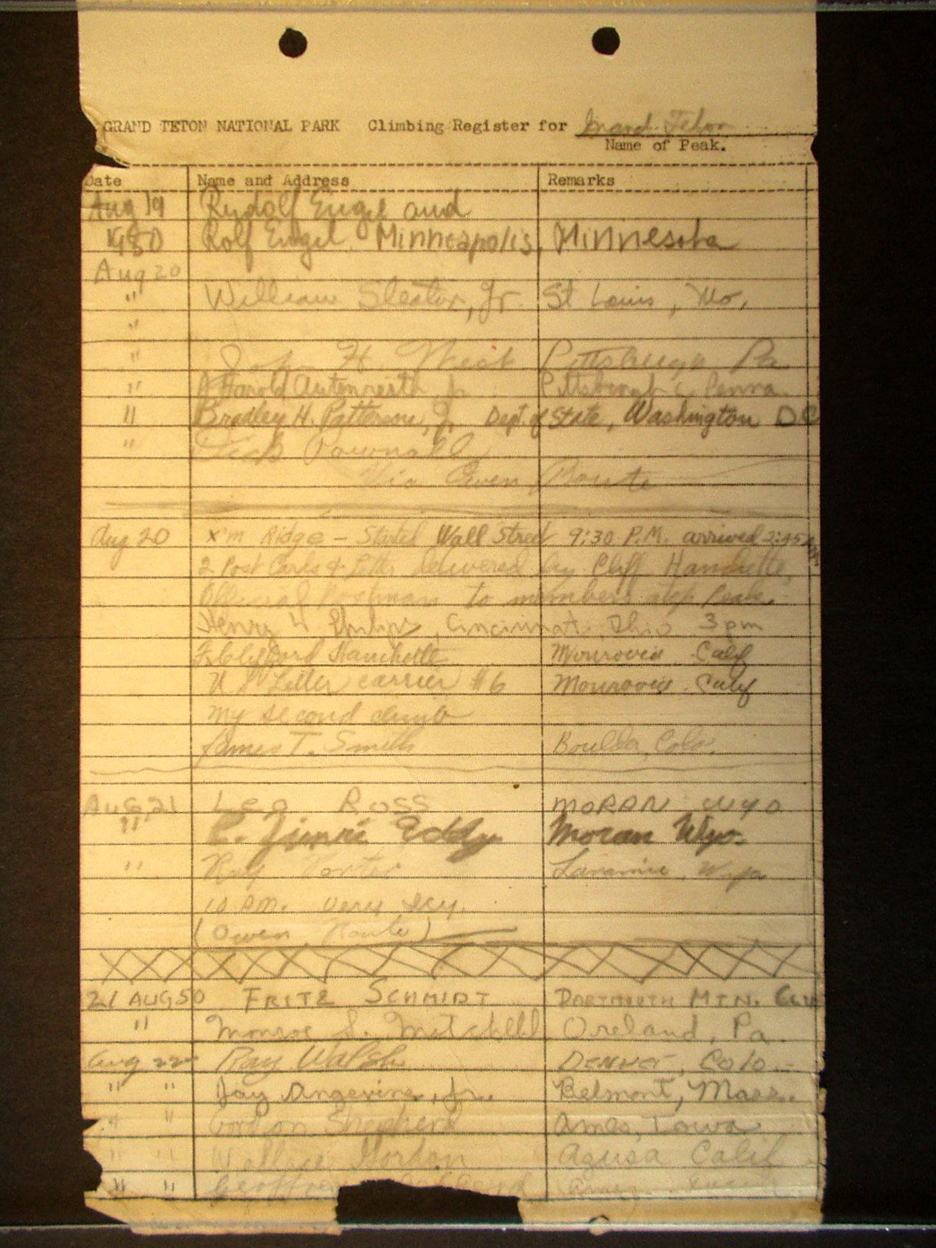 GRAND TETON NATIONAL PARK Climbing Register for Grand Teton
Name of Peak.
Date Name and Address Remarks
Aug 19 Rudolf Engel and
1950 Rolf Engel Minneapolis, Minnesota
Aug 20
" William Sleator, Jr. St Louis, Mo.
"
" H. Pittsburgh Pa
" J Harold Autenreith Jr Pittsburgh Penna.
" Bradley H. Patterson, Jr. Dept. of State, Washington DC
" Dick Pownall
Via Owen Route
Aug 20 x'm Ridge – Started Wall Street 9:30 P.M. arrived 2:45
2 Post Cards & Letter delivered by Cliff
Official Postman to members atop Peak.
Henry W Cincinnati Ohio 3 pm
Monrovia Calif
U S Letter carrier #6 Monrovia Calif
My second climb
James T. Smith Boulder, Colo.
Aug 21 Leo Ross MORAN WYO
" Eddy Moran Wyo.
" Laramie, Wyo
10 P.M. very icy.
(Owen Route)
21 AUG 50 FRITZ SCHMIDT DARTMOUTH MTN. CLU
" Monroe S. Mitchell Oreland, Pa.
Aug 22 Ray Walsh Denver, Colo.
" " Jay Angevine, Jr. Belmont, Mass.
" " Gordon Shepherd Ames, Iowa
" " Wallace Gordon Azusa Calif
" "